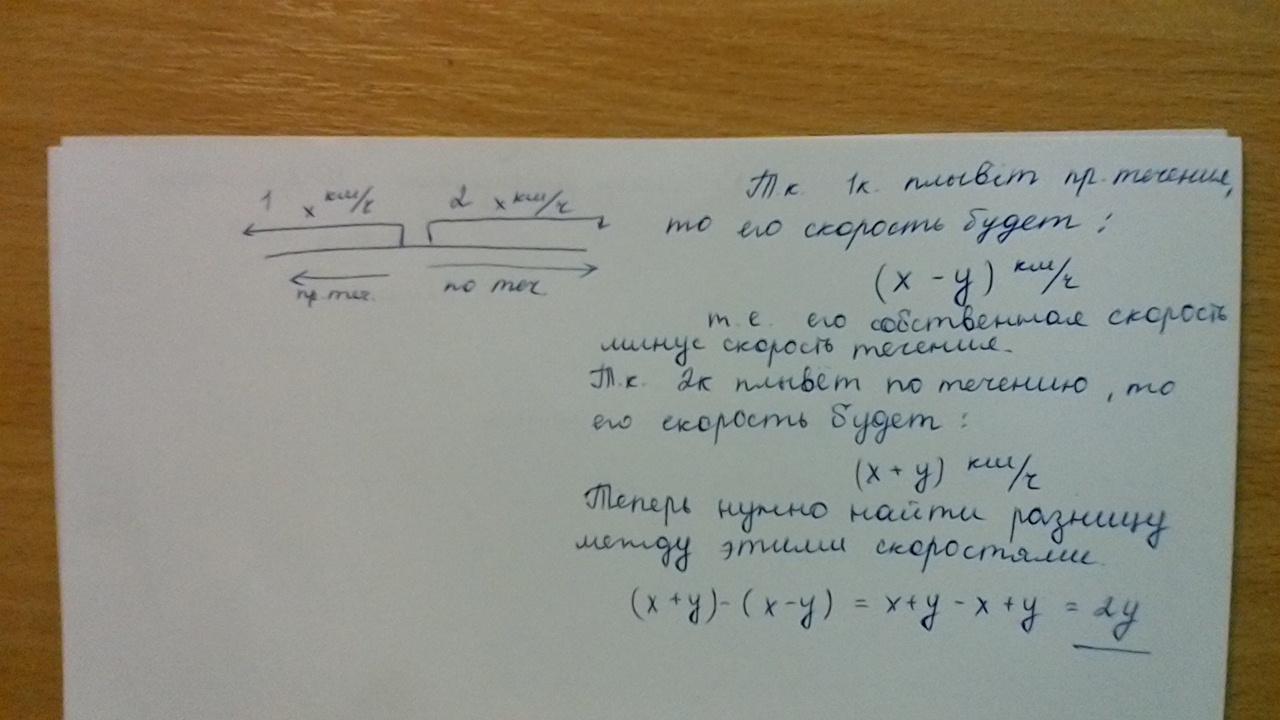 1 x км/ч 2 x км/ч
пр. теч. по теч.
Т.к. 1к. плывёт пр. течения,
то его скорость будет:
(x - y) км/ч
т.е. его собственная скорость
минус скорость течения.
Т.к. 2к плывёт по течению, то
его скорость будет:
(x + y) км/ч
Теперь нужно найти разницу
между этими скоростями.
(x+y)-(x-y) = x+y-x+y = 2y